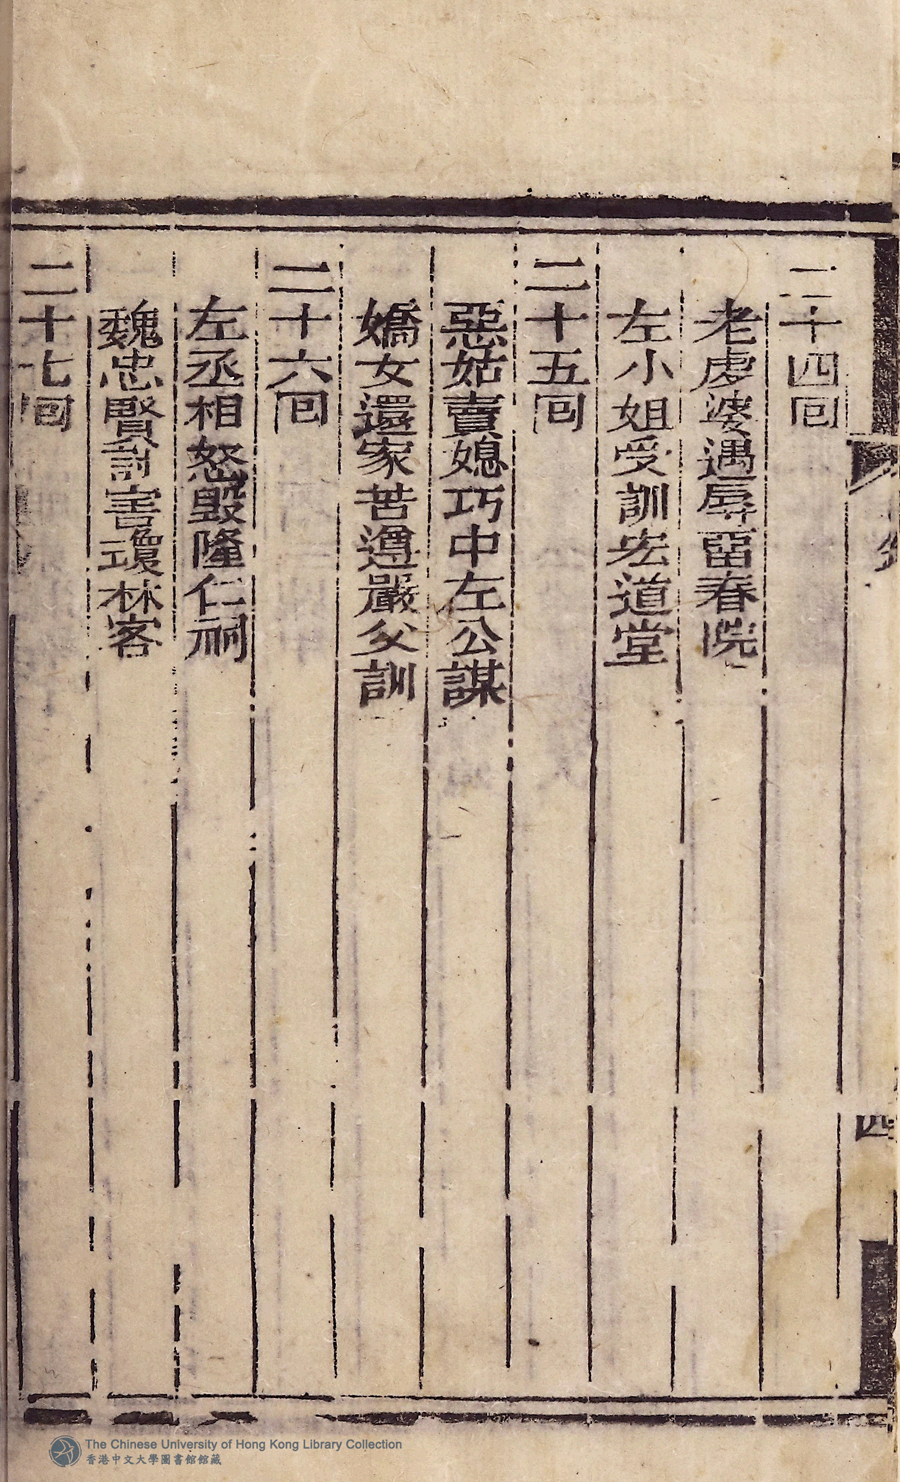 二十四回
老虔婆遇辱畱春院
左小姐受訓宏道堂
二十五回
惡姑賣媳巧中左公謀
嬌女還家苦遵嚴父訓
二十六回
左丞相怒毀隆仁祠
魏忠賢謝害瓊林客
二十七回
四
The Chinese University of Hong Kong Library Collection
香港中文大學圖書館館藏